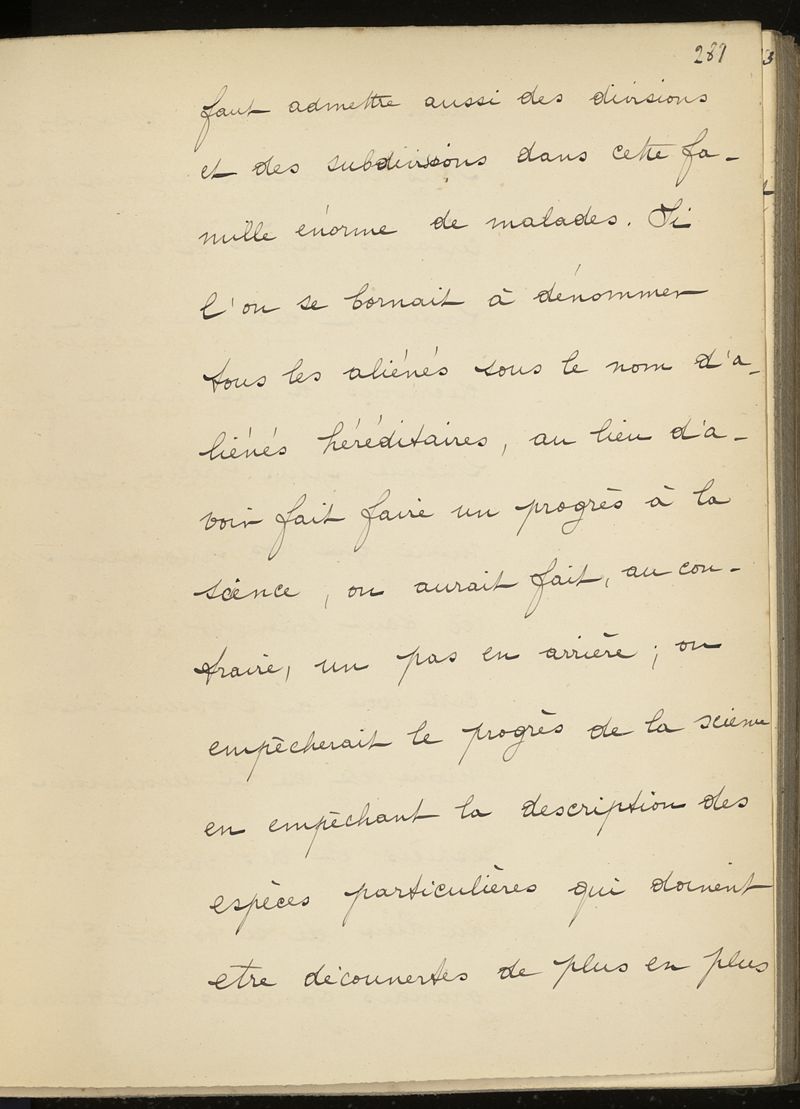 289
faut admettre aussi des divisions
et des subdivisions dans cette fa-
mille énorme de malades. Si
l'on se bornait à dénommer
tous les aliénés sous le nom d'a-
liénés héréditaires, au lieu d'a-
voir fait faire un progrès à la
science, on aurait fait, au con-
traire, un pas en arrière ; on
empêcherait le progrès de la science
en empêchant la description des
espèces particulières qui doivent
etre découvertes de plus en plus